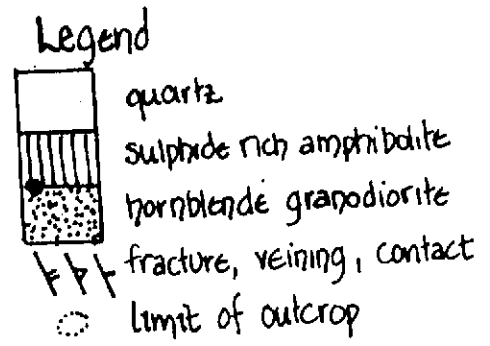 Legend
quartz
sulphide rich amphibolite
hornblende granodiorite
fracture, veining, contact
limit of outcrop